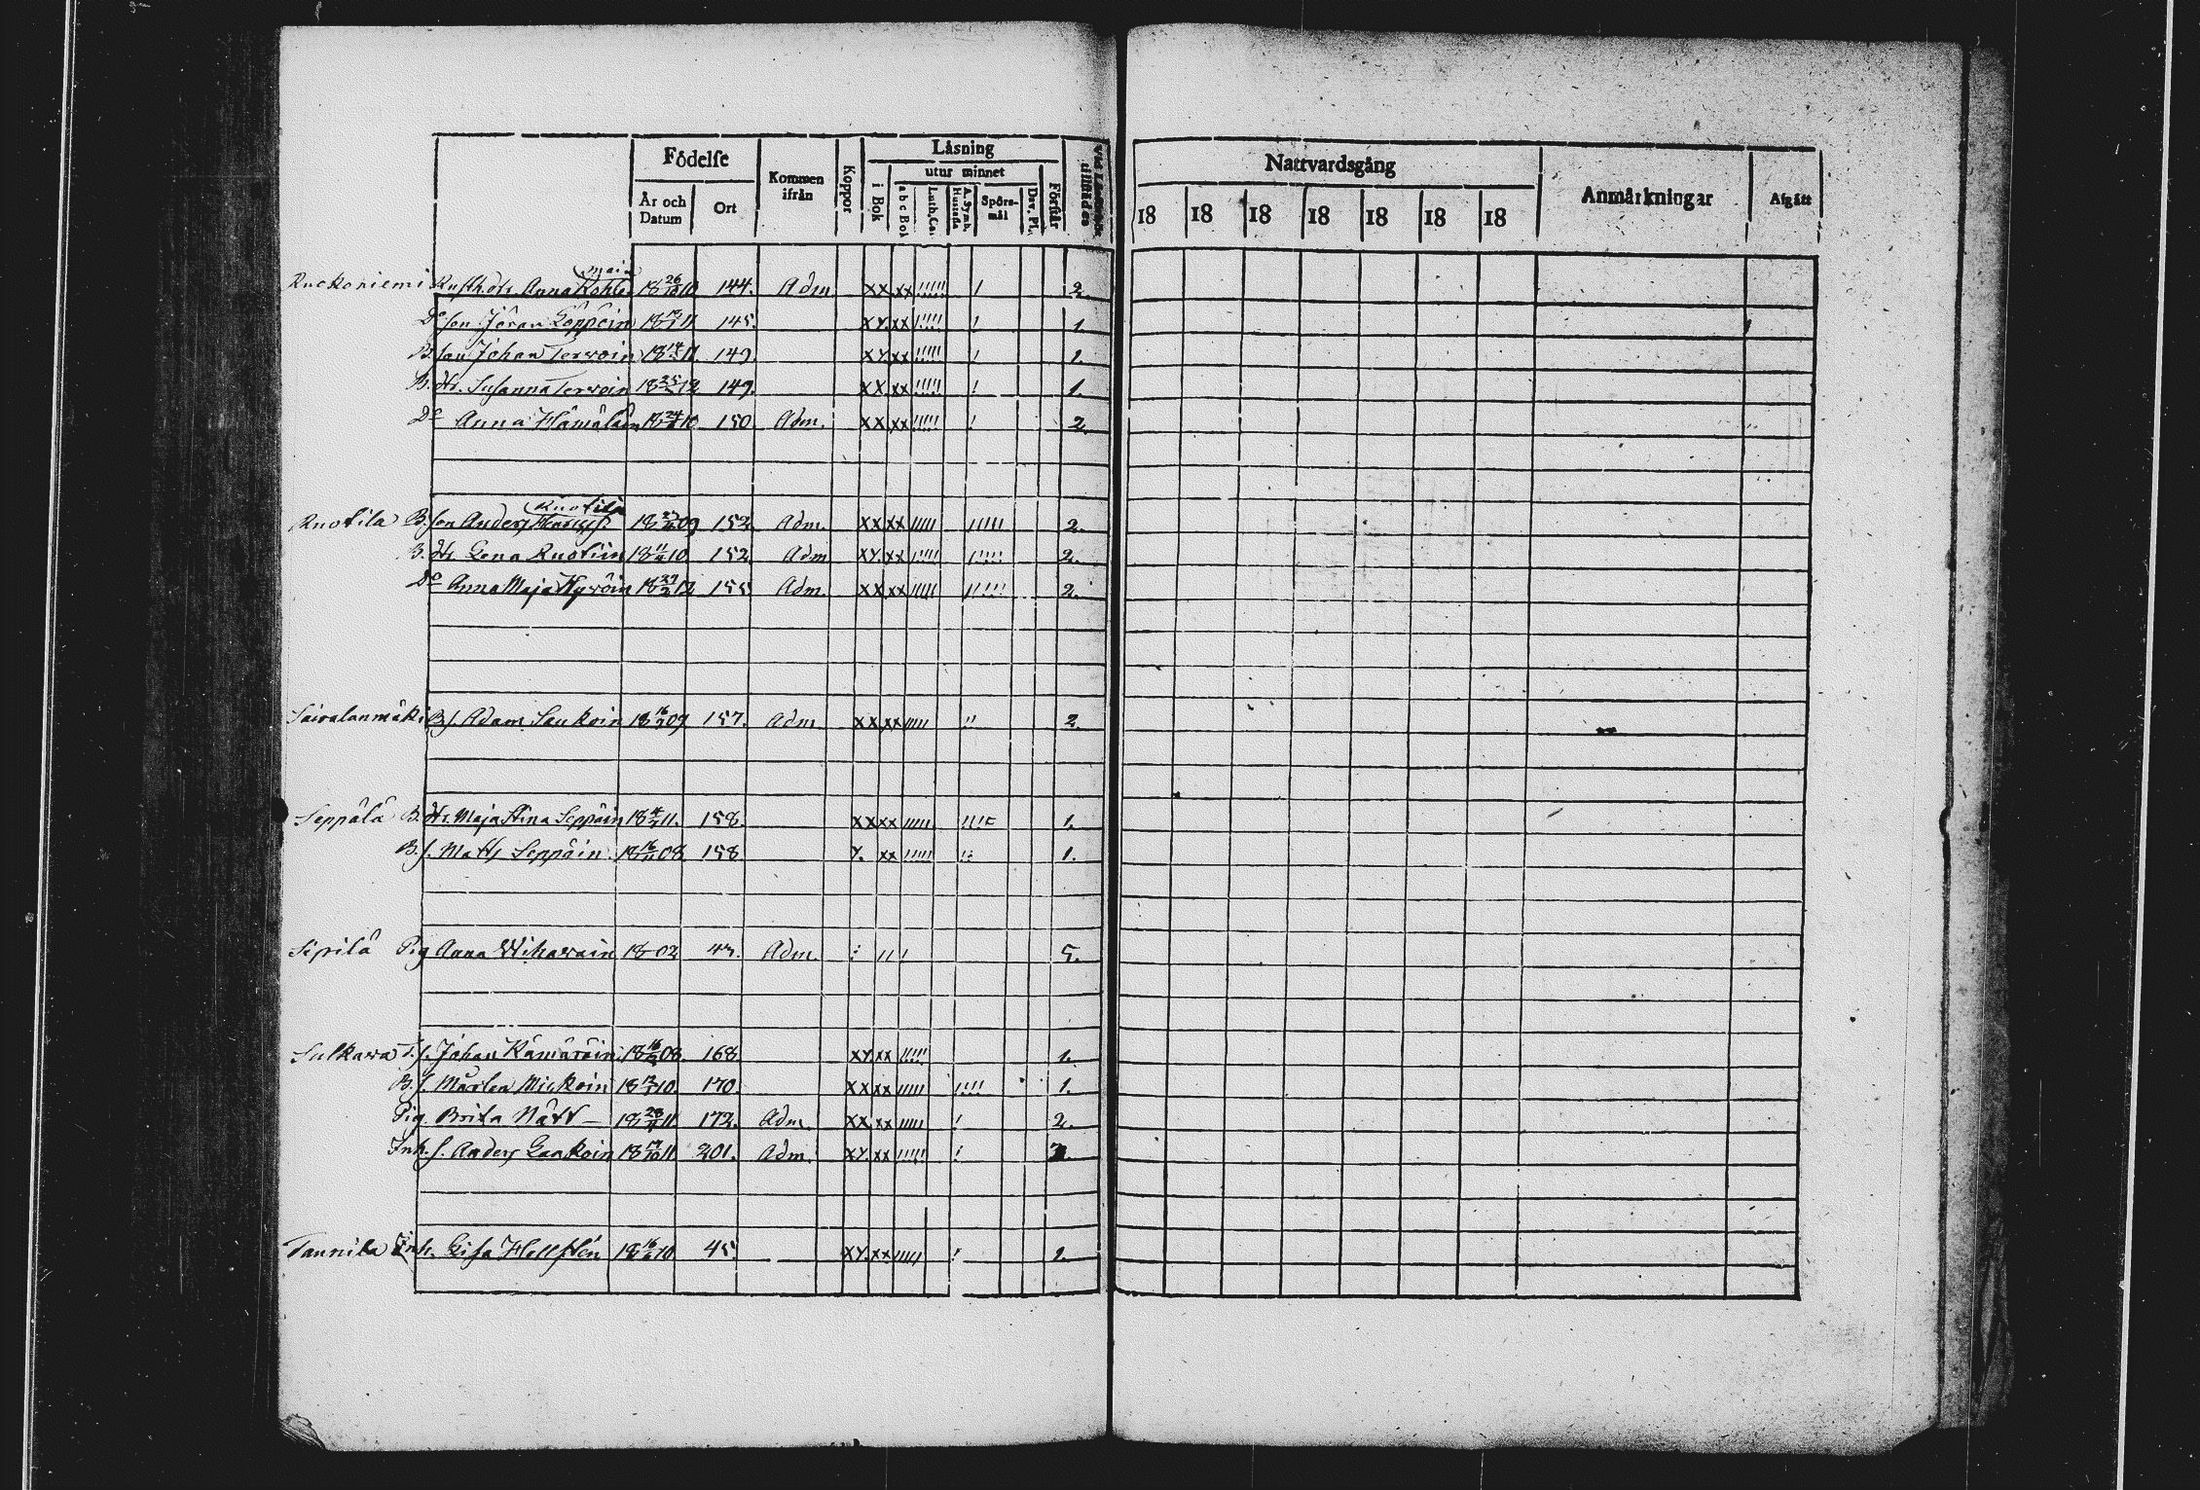 Födelse
Kommen ifrån
Koppor
Läsning
utur minnet
i Bok
a b c Bok
Luth. Cat.
A. Symb.
Hustafla
Spörsmål
Dav. Ps.
Förstår
År och Datum
Ort
Nattvardsgång
18 18 18 18 18 18 18
Anmärkningar
Afgått
maja
Ruokoniemi Rusth. dr. Anna 18 26/10 10 144. Adm. xx xx !!!!! ! 2.
Do son Jöran Loppoin 11 145. xy xx !!!!! ! 1.
B. son Johan Terwoin 18 11. 149. xy xx !!!!! ! 1.
B. dr. Susanna Terwoin 18 25 12 149. xx xx !!!!! ! 1.
Do Anna Hämäläin 18 24 10 150 Adm. xx xx !!!!! ! 2.
Ruotila
Ruotila B. son Anders 18 09 152. Adm. xx xx !!!!! !!!!! 2.
B. dr. Lena Ruotiin 18 11 10 152. Adm. xy xx !!!!! !!!!! 2.
Do Anna Maja Hywöin 18 12 155 Adm. xx xx !!!!! !!!!! 2.
Sairalanmäki B. s. Adam Laukoin 18 16 09 157. Adm. xx xx !!!!! !! 2.
Seppälä B. dr. Maja Stina Seppäin 18 11. 158. xx xx !!!!! 1.
B. s. Matts Seppäin 18 16/11 08 158 y. xx !!!!! 1.
Sipilä Pig. Anna Wihawain 18 02 Adm. 5.
Sulkawa s. Johan Kämäräin 18 16 08. 168 xy xx !!!!! 1.
B. s. Mårten Mickoin 18 10. 170. xx xx !!!!! !!!! 1.
Pig. Brita Nätt – 18 28 11 172. Adm. xx xx !!!!! ! 2.
Inh. s. Anders Laukoin 18 11 201. Adm. xy xx !!!!! !
Tannila Inh. Lisa Hellstén 18 16 10. 45. xy xx !!!!! ! 1.